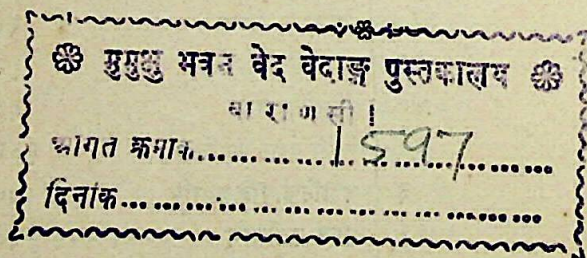 ❀ मुमुक्षु भवन वेद वेदाङ्ग पुस्तकालय ❀
वाराणसी।
आगत क्रमांक.......1597.......
दिनांक..............................